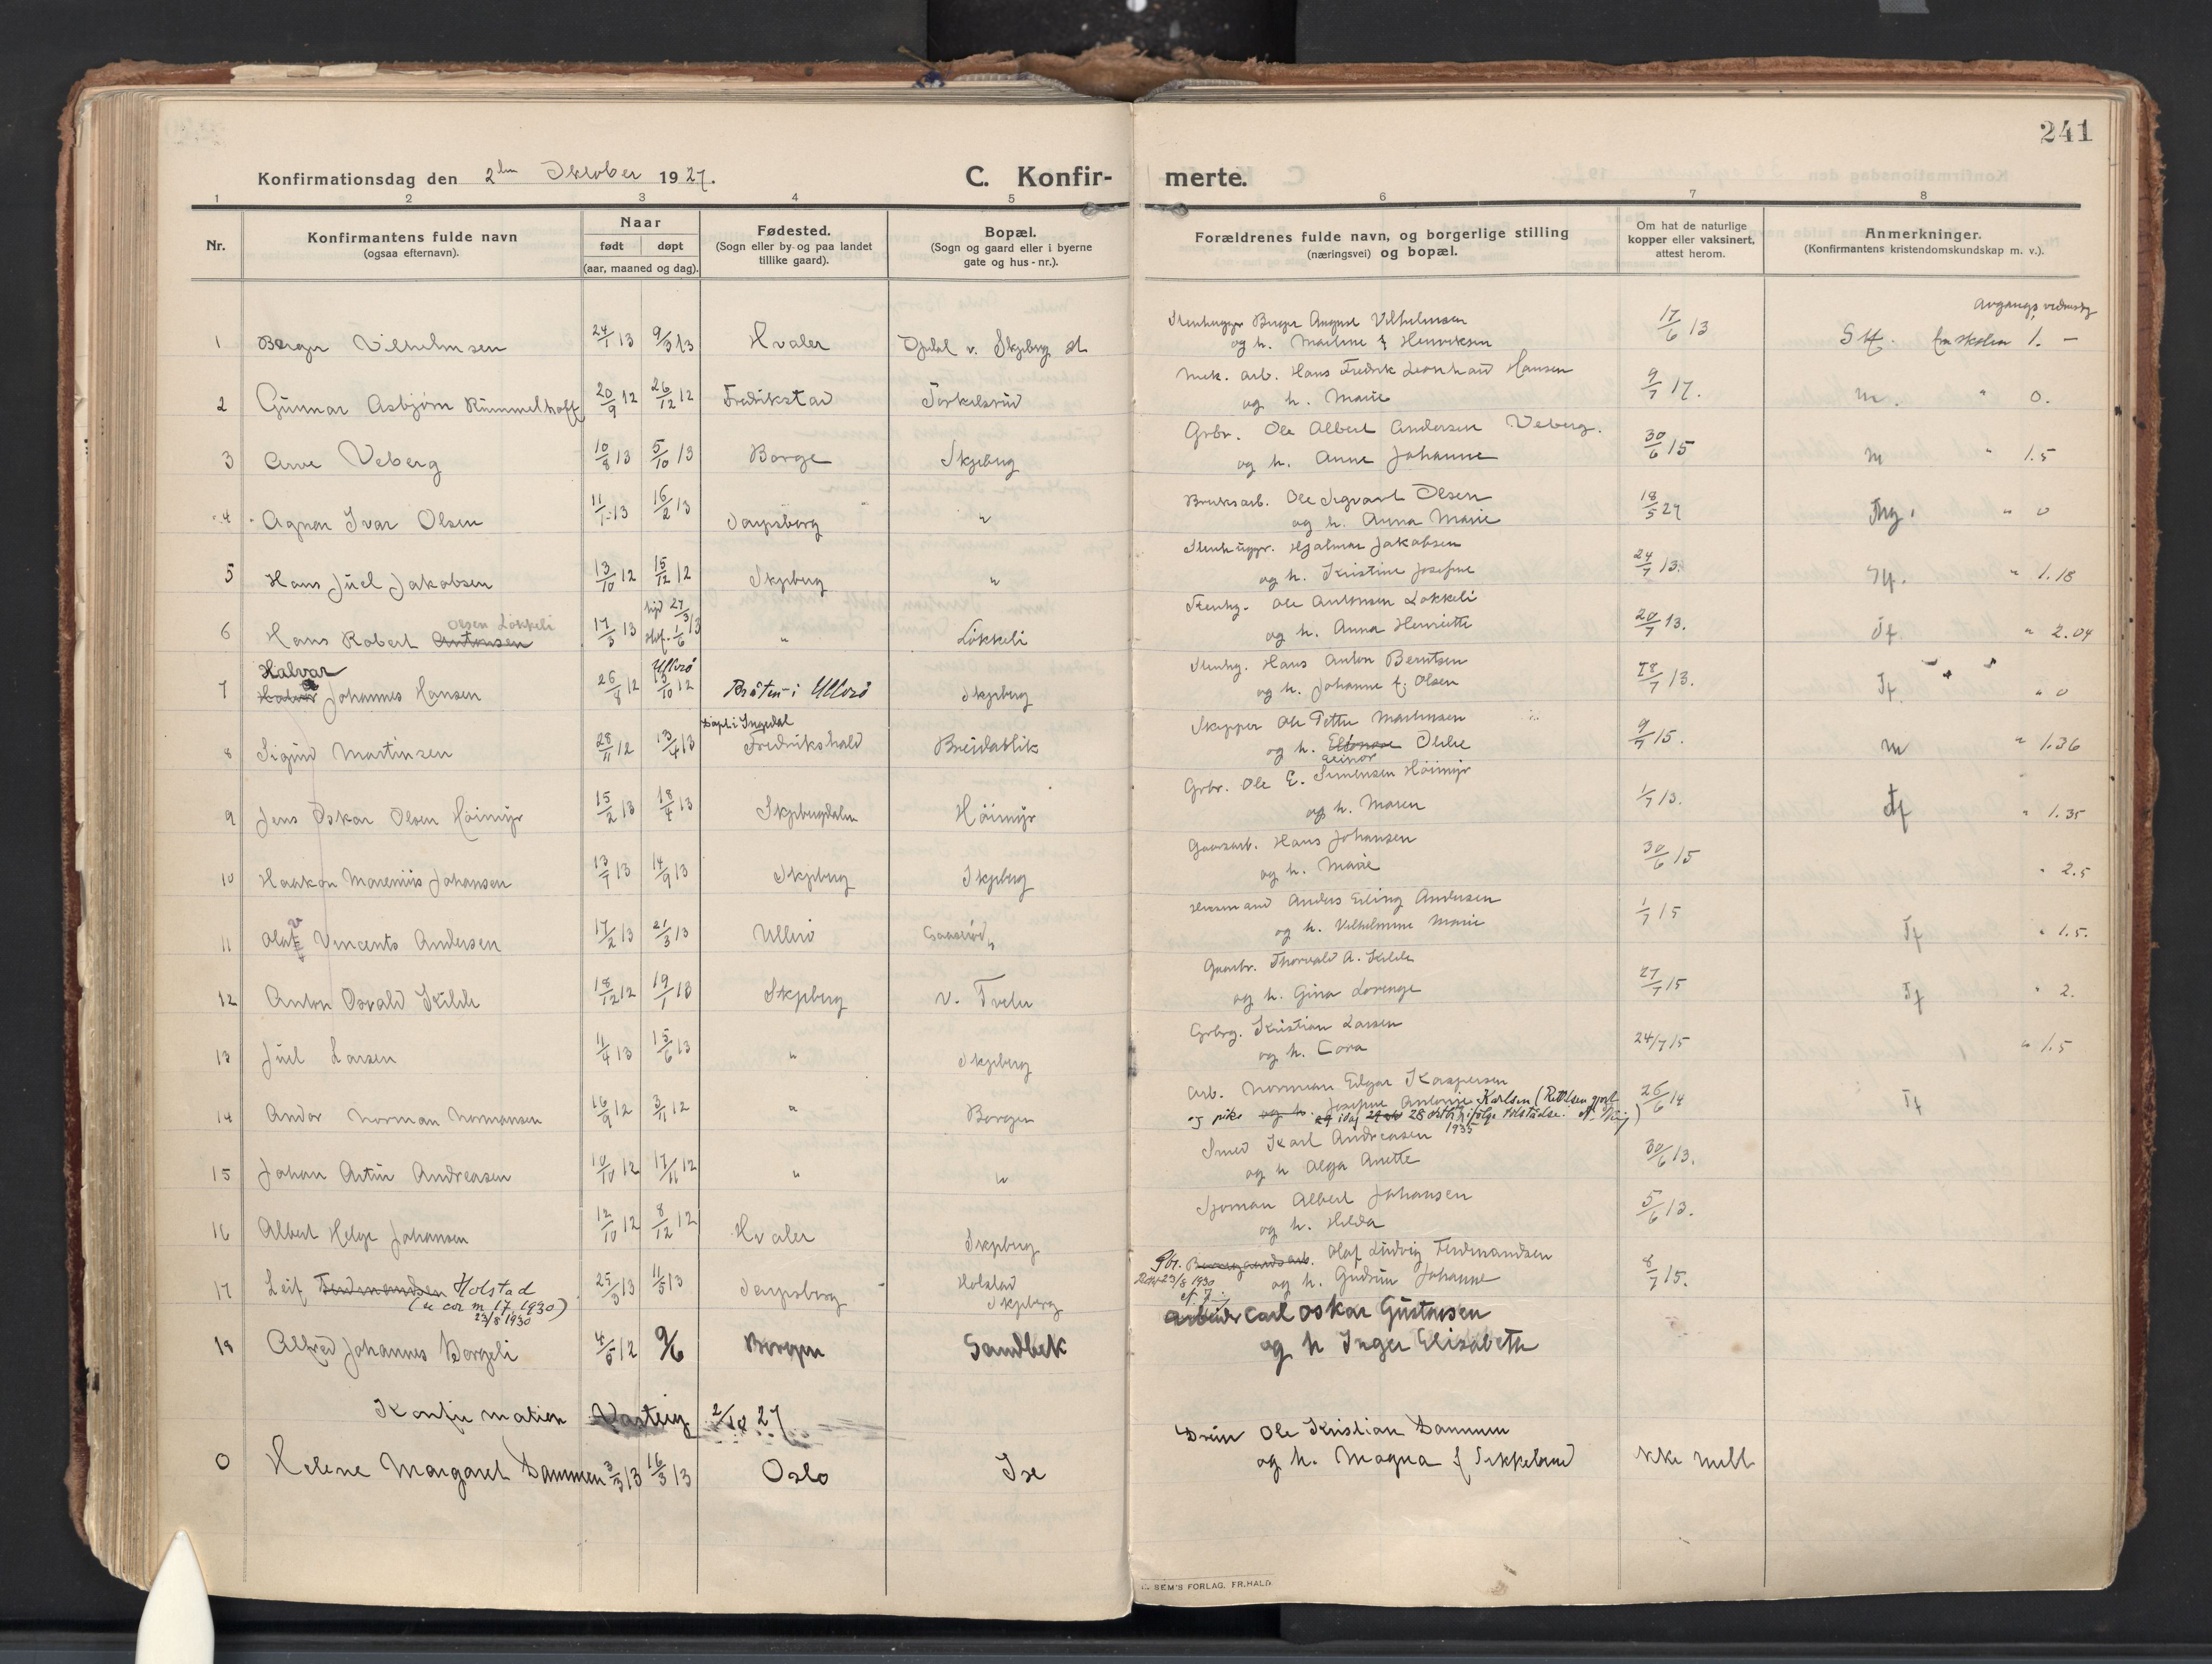 241
Konfirmationsdag den 2den Oktober 1927. C. Konfir- merte.
1 2 3 4 5 6 7 8
Nr. Konfirmantens fulde navn (ogsaa efternavn). Naar født døpt (aar, maaned og dag). Fødested. (Sogn eller by og paa landet tillike gaard). Bopæl. (Sogn og gaard eller i byerne gate og hus-nr.). Forældrenes fulde navn, og borgerlige stilling (næringsvei) og bopæl. Om hat de naturlige kopper eller vaksinert, attest herom. Anmerkninger. (Konfirmantens kristendomskundskap m. v.).
1 Birger Vilhelmsen 24/1 13 9/3 13 Hvaler v. Skjeberg st Stenhugger Birger August Vilhelmsen 17/6 13 fra skolen 1. —
og h. Martine f Henriksen
2 Gunnar Asbjørn Rummelhoff 20/9 12 26/12 12 Fredrikstad Torkelsrud Mek. arb. Hans Fredrik Leonhard Hansen 9/7 17. m. " 0.
og h. Marie
3 Arve Veberg 10/8 13 5/10 13 Borge Skjeberg Grbr. Ole Albert Andersen Veberg. 30/6 15 m " 1.5
og h. Anne Johanne
4 Agnar Ivar Olsen 11/1 13 16/2 13 Sarpsborg " Bruksarb. Ole Sigvart Olsen 18/5 27 Mg. " 0
og h. Anna Marie
5 Hans Juel Jakobsen 13/10 12 15/12 12 Skjeberg " Stenhugger. Hjalmar Jakobsen 24/7 13. Tf. " 1.18
og h. Kristine Josefine
6 Hans Robert Antonsen Olsen Løkkeli 17/3 13 hjd 27/3 13 1/6 " Løkkeli Stenhg. Ole Antonsen Løkkeli 20/7 13. Tf. " 2.04
og h. Anna Henriette
7 Halvar Johannes Hansen 26/8 12 Ullerø 13/10 12 Bråten i Ullerø Skjeberg Stenhg. Hans Anton Berntsen 28/7 13. Tf. " 0
og h. Johanne f. Olsen
8 Sigurd Martinsen 28/11 12 13/4 13 Døpt i Ingedal Fredrikshald Breidablik Skipper Ole Petter Martinsen 9/7 15. m " 1.36
og h. Elinor Oldre
9 Jens Oskar Olsen Høimyr 15/2 13 18/4 13 Skjebergdalen Høimyr Grbr. Ole E. Simensen Høimyr 1/7 13. Tf " 1.35
og h. Maren
10 Haakon Marenius Johansen 13/7 13 14/9 13 Skjeberg Skjeberg Gaardsarb. Hans Johansen 30/6 15 " 2.5
og h. Marie
11 Olaf v Vincents Andersen 17/2 13 21/3 13 Ullerø Gaaserød Husmand Anders Erling Andersen 1/7 15 Tf " 1.5.
og h. Vilhelmine Marie
12 Anton Osvald Kilde 18/12 12 19/1 13 Skjeberg v. Tveter Gaardbr. Thorvald A. Kilde 27/7 15 Tf " 2.
og h. Gina Lovenge
13 Juel Larsen 11/4 13 15/6 13 " Skjeberg Grbrg. Kristian Larsen 24/7 15 " 1.5
og h. Cora
14 Andor Norman Normansen 16/9 12 3/11 12 " Borgen Arb. Norman Edgar Kaspersen 26/6 14 Tf
og pike og h. Josefine Antonie Karlsen (Rettelsen gjort
idag 28 oktbr ifølge tilståelse. 1935)
15 Johan Artur Andreasen 10/10 12 17/11 12 " " Smed Karl Andreasen 30/6 13.
og h Olga Anette
16 Albert Helge Johansen 12/10 12 8/12 12 Hvaler Skjeberg Sjøman Albert Johansen 5/6 13.
og h. Hilda
17 Leif Ferdinandsen Holstad 25/3 13 11/5 13 Sarpsborg Holstad Skjeberg Gbr. Olaf Ludvig Ferdinandsen 8/7 15.
(se cor m 17, 1930) 23/8 1930 23/8 1930 og h. Gudrun Johanne
18 Alfred Johannes Borgeli 4/5 12 9/6 Borgen Sandbek Arbeider Carl Oskar Gustavsen
og h Inger Elisabeth
Konfirmation Varteig 2/10 27
0 Helene Margaret Dammen 3/3 13 16/3 13 Oslo Ise Ole Kristian Dammen ikke meldt
og h. Magna f Sikkeland
SEM'S FORLAG. FR.HALD